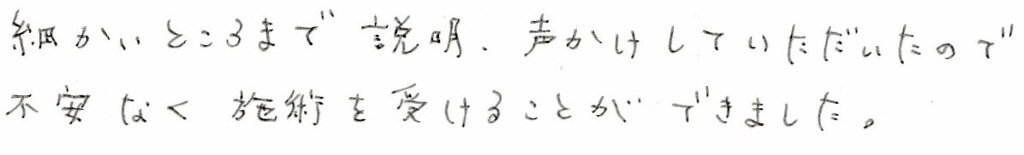 細かいところまで説明、声かけしていただいたので
不安なく施術を受けることができました。